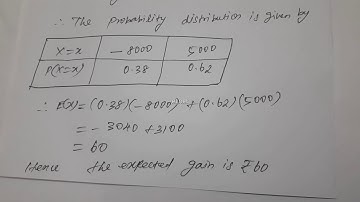 ∴ The probability distribution is given by
X=x -8000 5000
P(X=x) 0.38 0.62
∴ E(X)=(0.38)(-8000)+(0.62)(5000)
= -3040 +3100
= 60
Hence the expected gain is ₹60